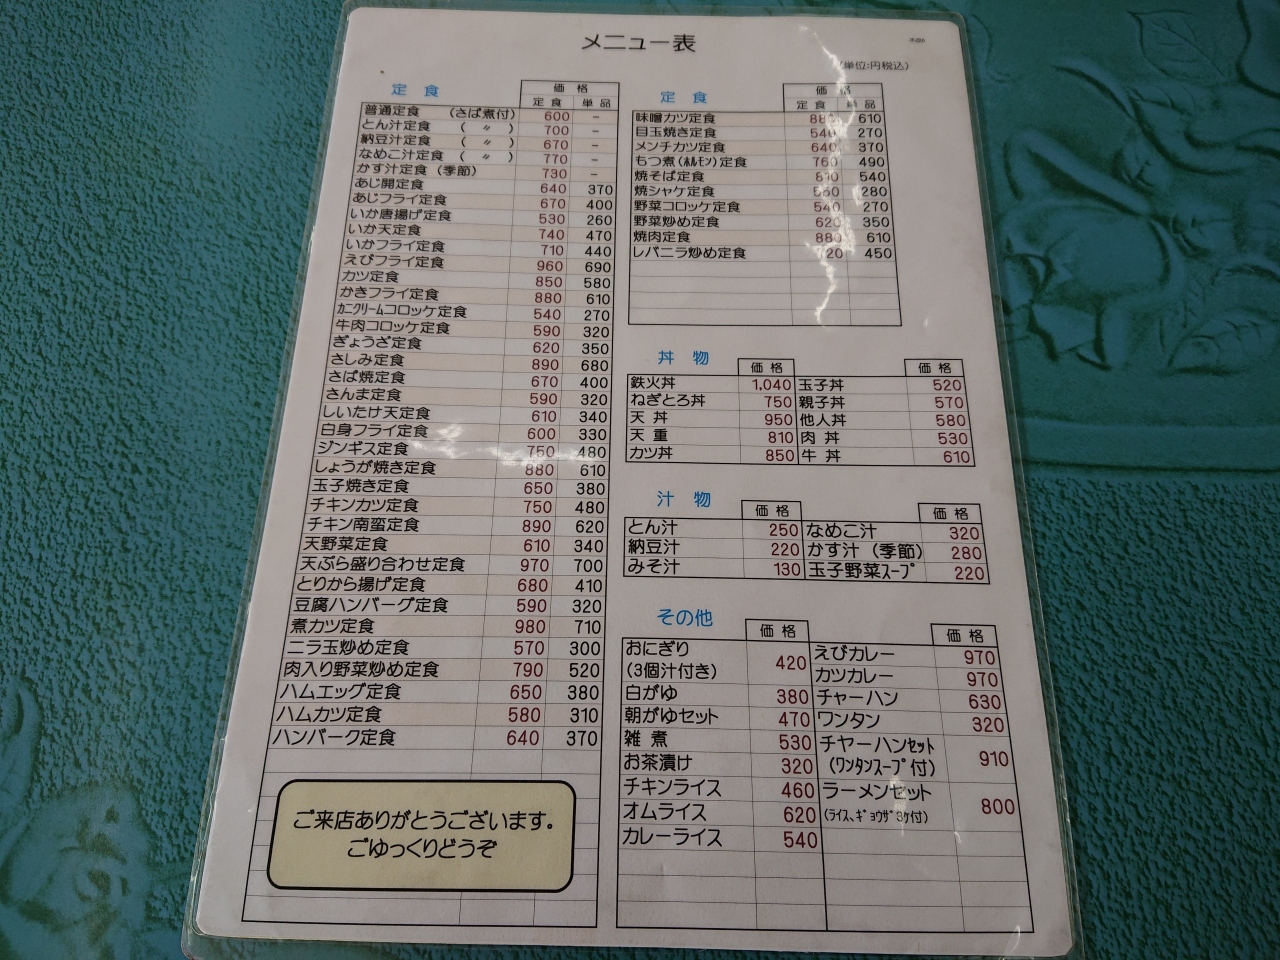 メニュー表
(単位:円税込)
定食 価格
定食 単品
普通定食 (さば煮付) 600 -
とん汁定食 ( 〃 ) 700 -
納豆汁定食 ( 〃 ) 670 -
なめこ汁定食 ( 〃 ) 770 -
かす汁定食 (季節) 730 -
あじ開定食 640 370
あじフライ定食 670 400
いか唐揚げ定食 530 260
いか天定食 740 470
いかフライ定食 710 440
えびフライ定食 960 690
カツ定食 850 580
かきフライ定食 880 610
カニクリームコロッケ定食 540 270
牛肉コロッケ定食 590 320
ぎょうざ定食 620 350
さしみ定食 890 680
さば焼定食 670 400
さんま定食 590 320
しいたけ天定食 610 340
白身フライ定食 600 330
ジンギス定食 750 480
しょうが焼き定食 880 610
玉子焼き定食 650 380
チキンカツ定食 750 480
チキン南蛮定食 890 620
天野菜定食 610 340
天ぷら盛り合わせ定食 970 700
とりから揚げ定食 680 410
豆腐ハンバーグ定食 590 320
煮カツ定食 980 710
ニラ玉炒め定食 570 300
肉入り野菜炒め定食 790 520
ハムエッグ定食 650 380
ハムカツ定食 580 310
ハンバーク定食 640 370
ご来店ありがとうございます。
ごゆっくりどうぞ
定食 価格
定食 単品
味噌カツ定食 880 610
目玉焼き定食 540 270
メンチカツ定食 640 370
もつ煮(ホルモン)定食 760 490
焼そば定食 810 540
焼シャケ定食 280
野菜コロッケ定食 540 270
野菜炒め定食 620 350
焼肉定食 880 610
レバニラ炒め定食 720 450
丼物 価格 価格
鉄火丼 1,040 玉子丼 520
ねぎとろ丼 750 親子丼 570
天丼 950 他人丼 580
天重 810 肉丼 530
カツ丼 850 牛丼 610
汁物 価格 価格
とん汁 250 なめこ汁 320
納豆汁 220 かす汁 (季節) 280
みそ汁 130 玉子野菜スープ 220
その他 価格 価格
おにぎり
(3個汁付き) 420
白がゆ 380
朝がゆセット 470
雑煮 530
お茶漬け 320
チキンライス 460
オムライス 620
カレーライス 540
えびカレー 970
カツカレー 970
チャーハン 630
ワンタン 320
チヤーハンセット
(ワンタンスープ付) 910
ラーメンセット
(ライス、ギョウザ3ケ付) 800